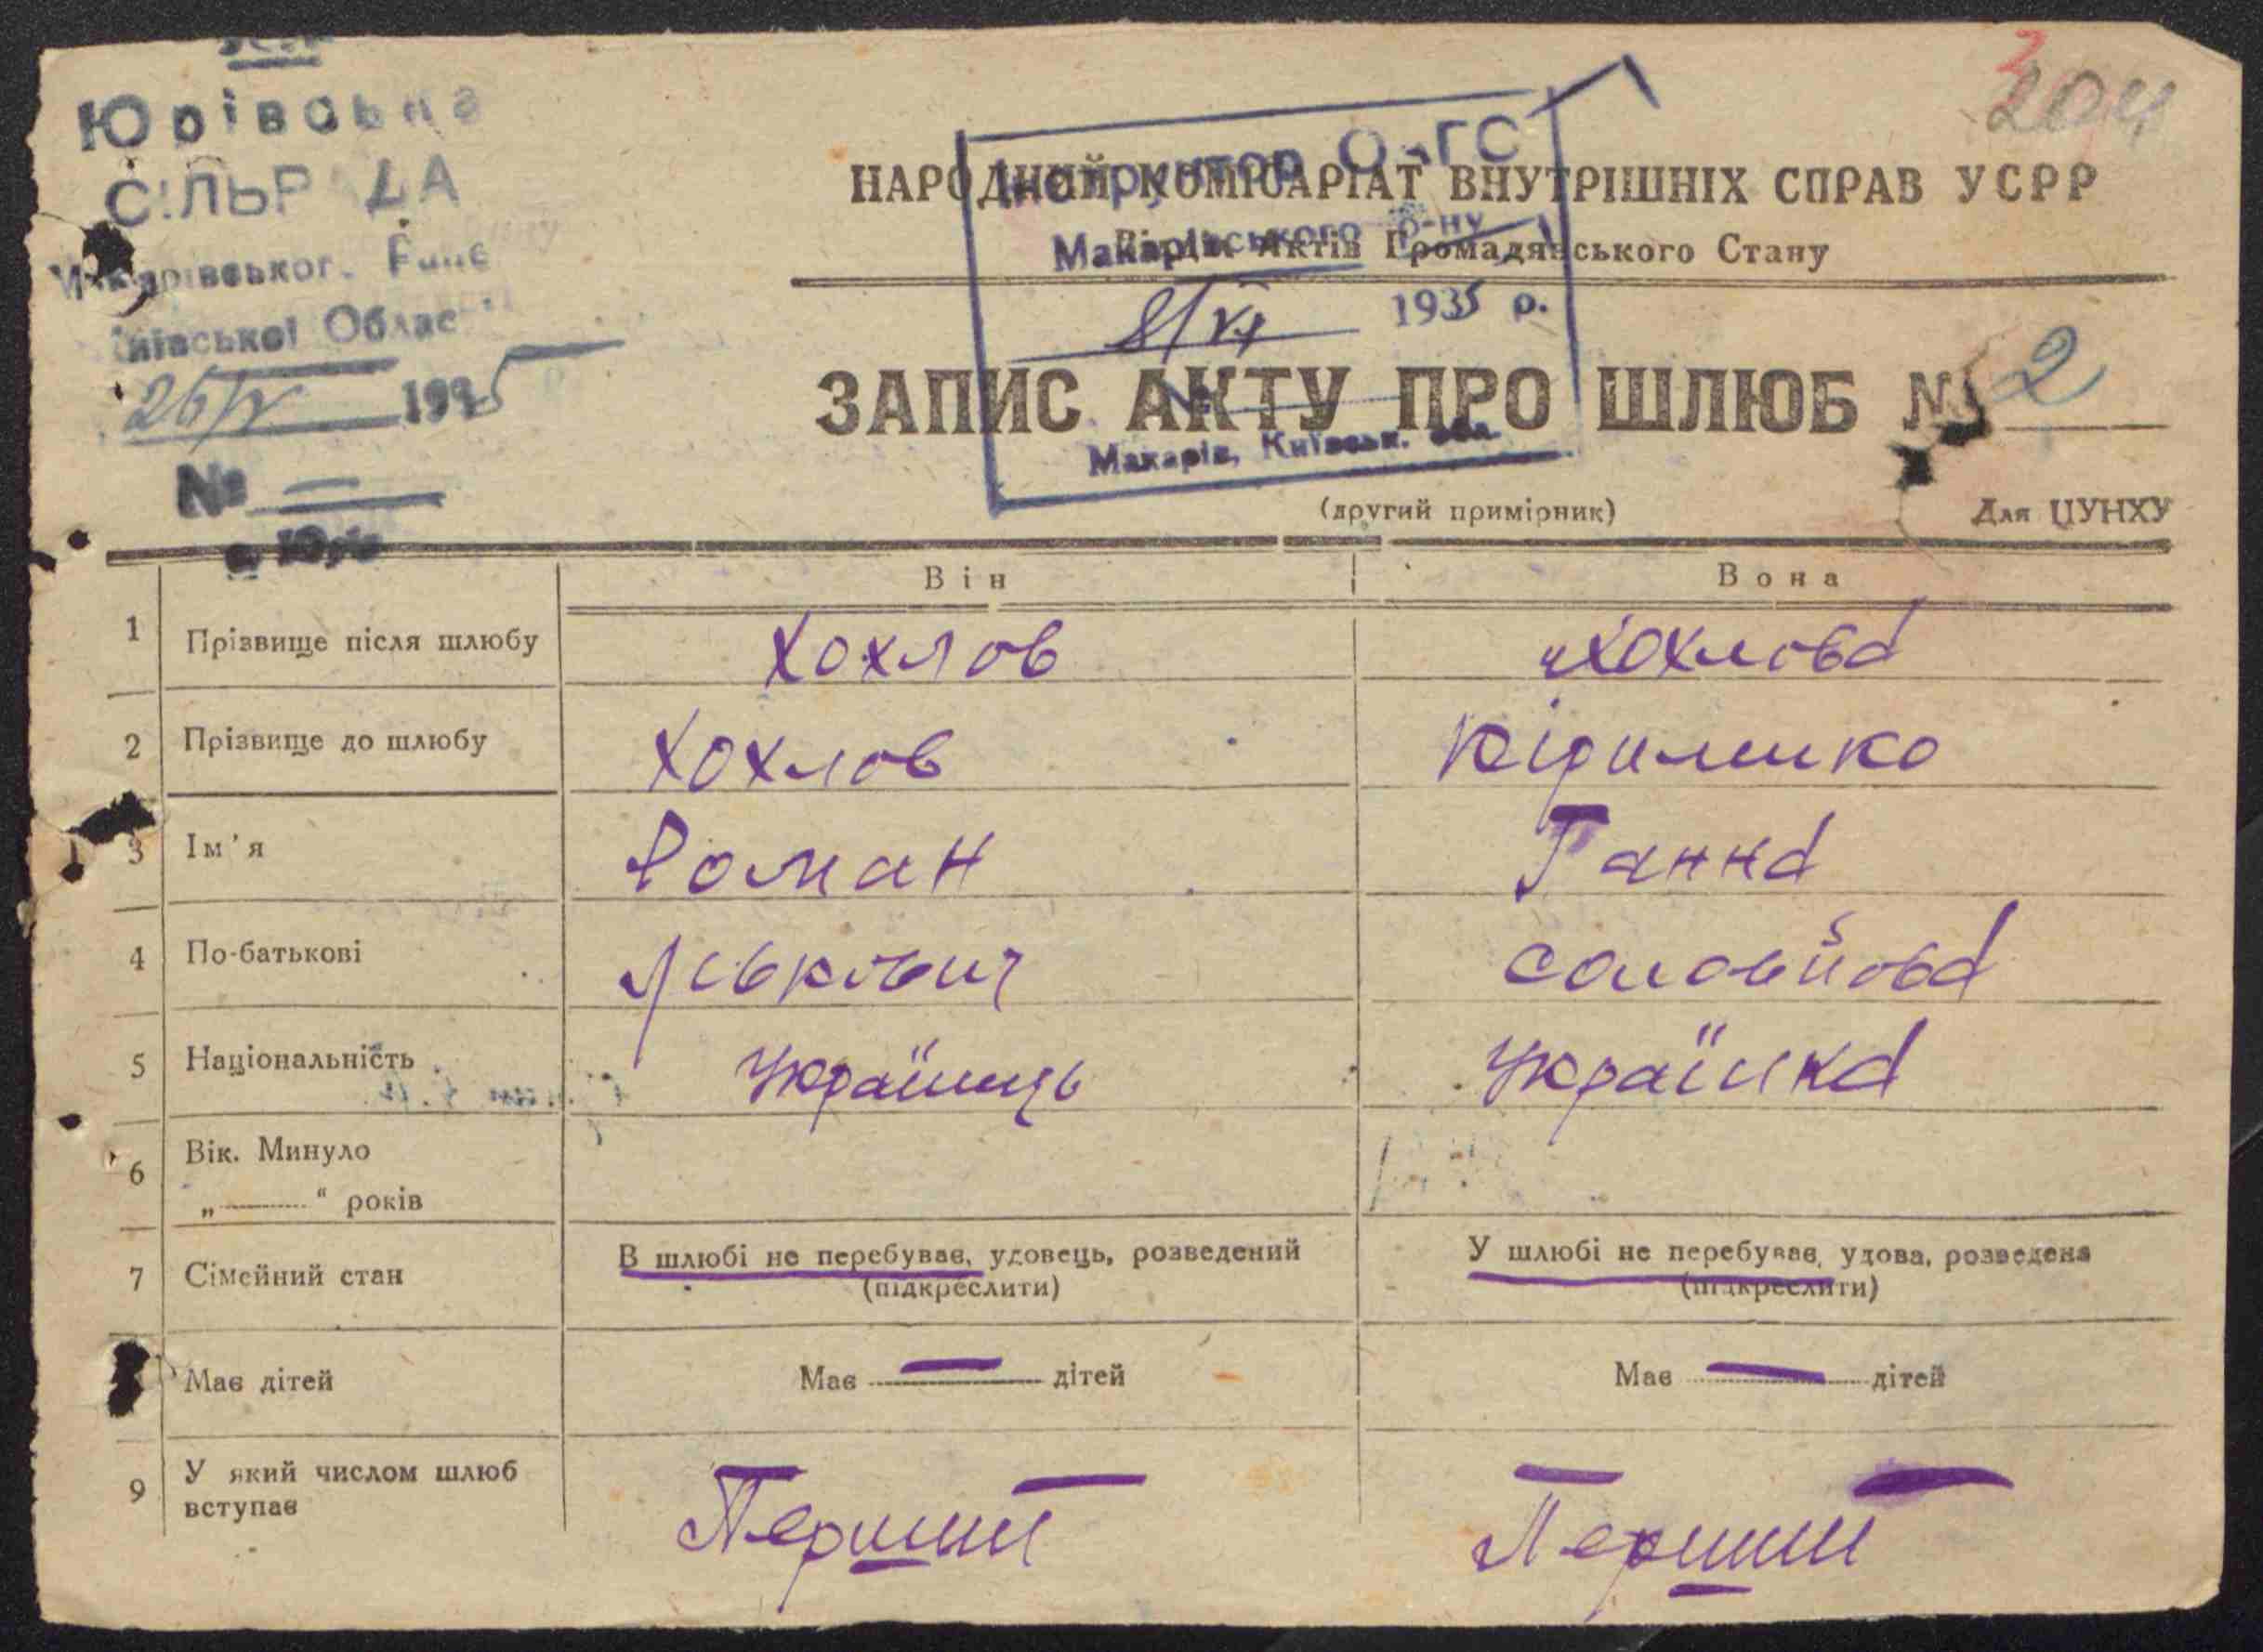 204
Юрівська
СІЛЬРАДА
Макарівськог. Райо
Київської Облас
26/IV 1935
№ —
НАРОДНИЙ КОМІСАРІАТ ВНУТРІШНІХ СПРАВ УСРР
Відділ Актів Громадянського Стану
Інструктор ОАГС
Макарівського р-ну
8/VI 1935 р.
Макарів, Київськ. обл.
ЗАПИС АКТУ ПРО ШЛЮБ № 2
(другий примірник) Для ЦУНХУ
Він Вона
1 Прізвище після шлюбу Хохлов Хохлова
2 Прізвище до шлюбу Хохлов
3 Ім'я Роман Ганна
4 По-батькові Соловйова
5 Національність Українець Українка
6 Вік. Минуло
„ “ років
7 Сімейний стан В шлюбі не перебував, удовець, розведений У шлюбі не перебував, удова, розведена
(підкреслити) (підкреслити)
Має дітей Має — дітей Має — дітей
9 У який числом шлюб
вступає Перший Перший